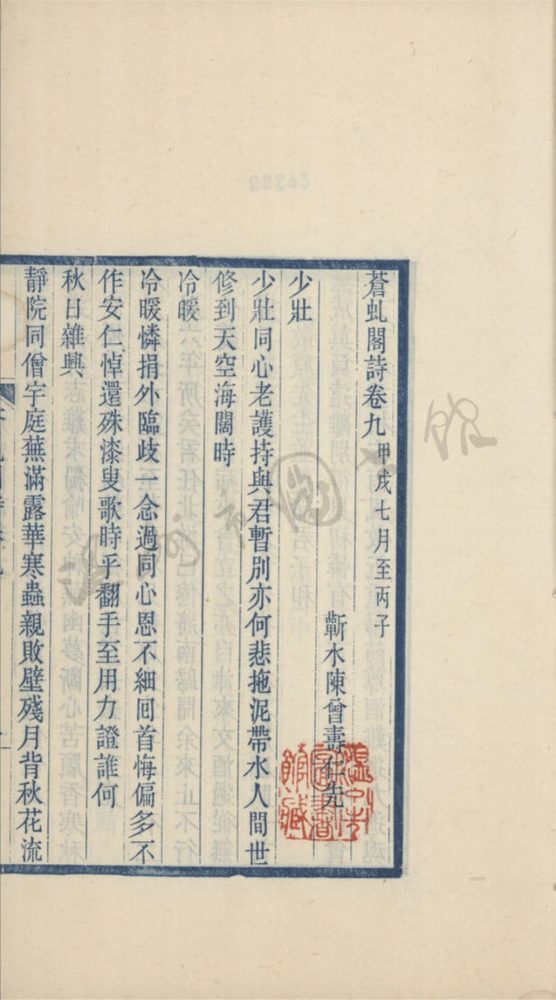 蒼虬閣詩卷九 甲戌七月至丙子
蘄水陳曾壽仁先
少壯
少壯同心老護持與君暫別亦何悲拖泥帶水人間世
修到天空海闊時
冷暖
冷暖憐捐外臨歧一念過同心恩不細回首悔偏多不
作安仁悼還殊漆叟歌時乎翻手至用力證誰何
秋日雜興
靜院同僧宇庭蕪滿露華寒蟲親敗壁殘月背秋花流
溫州市圖書館藏
溫州市圖書館